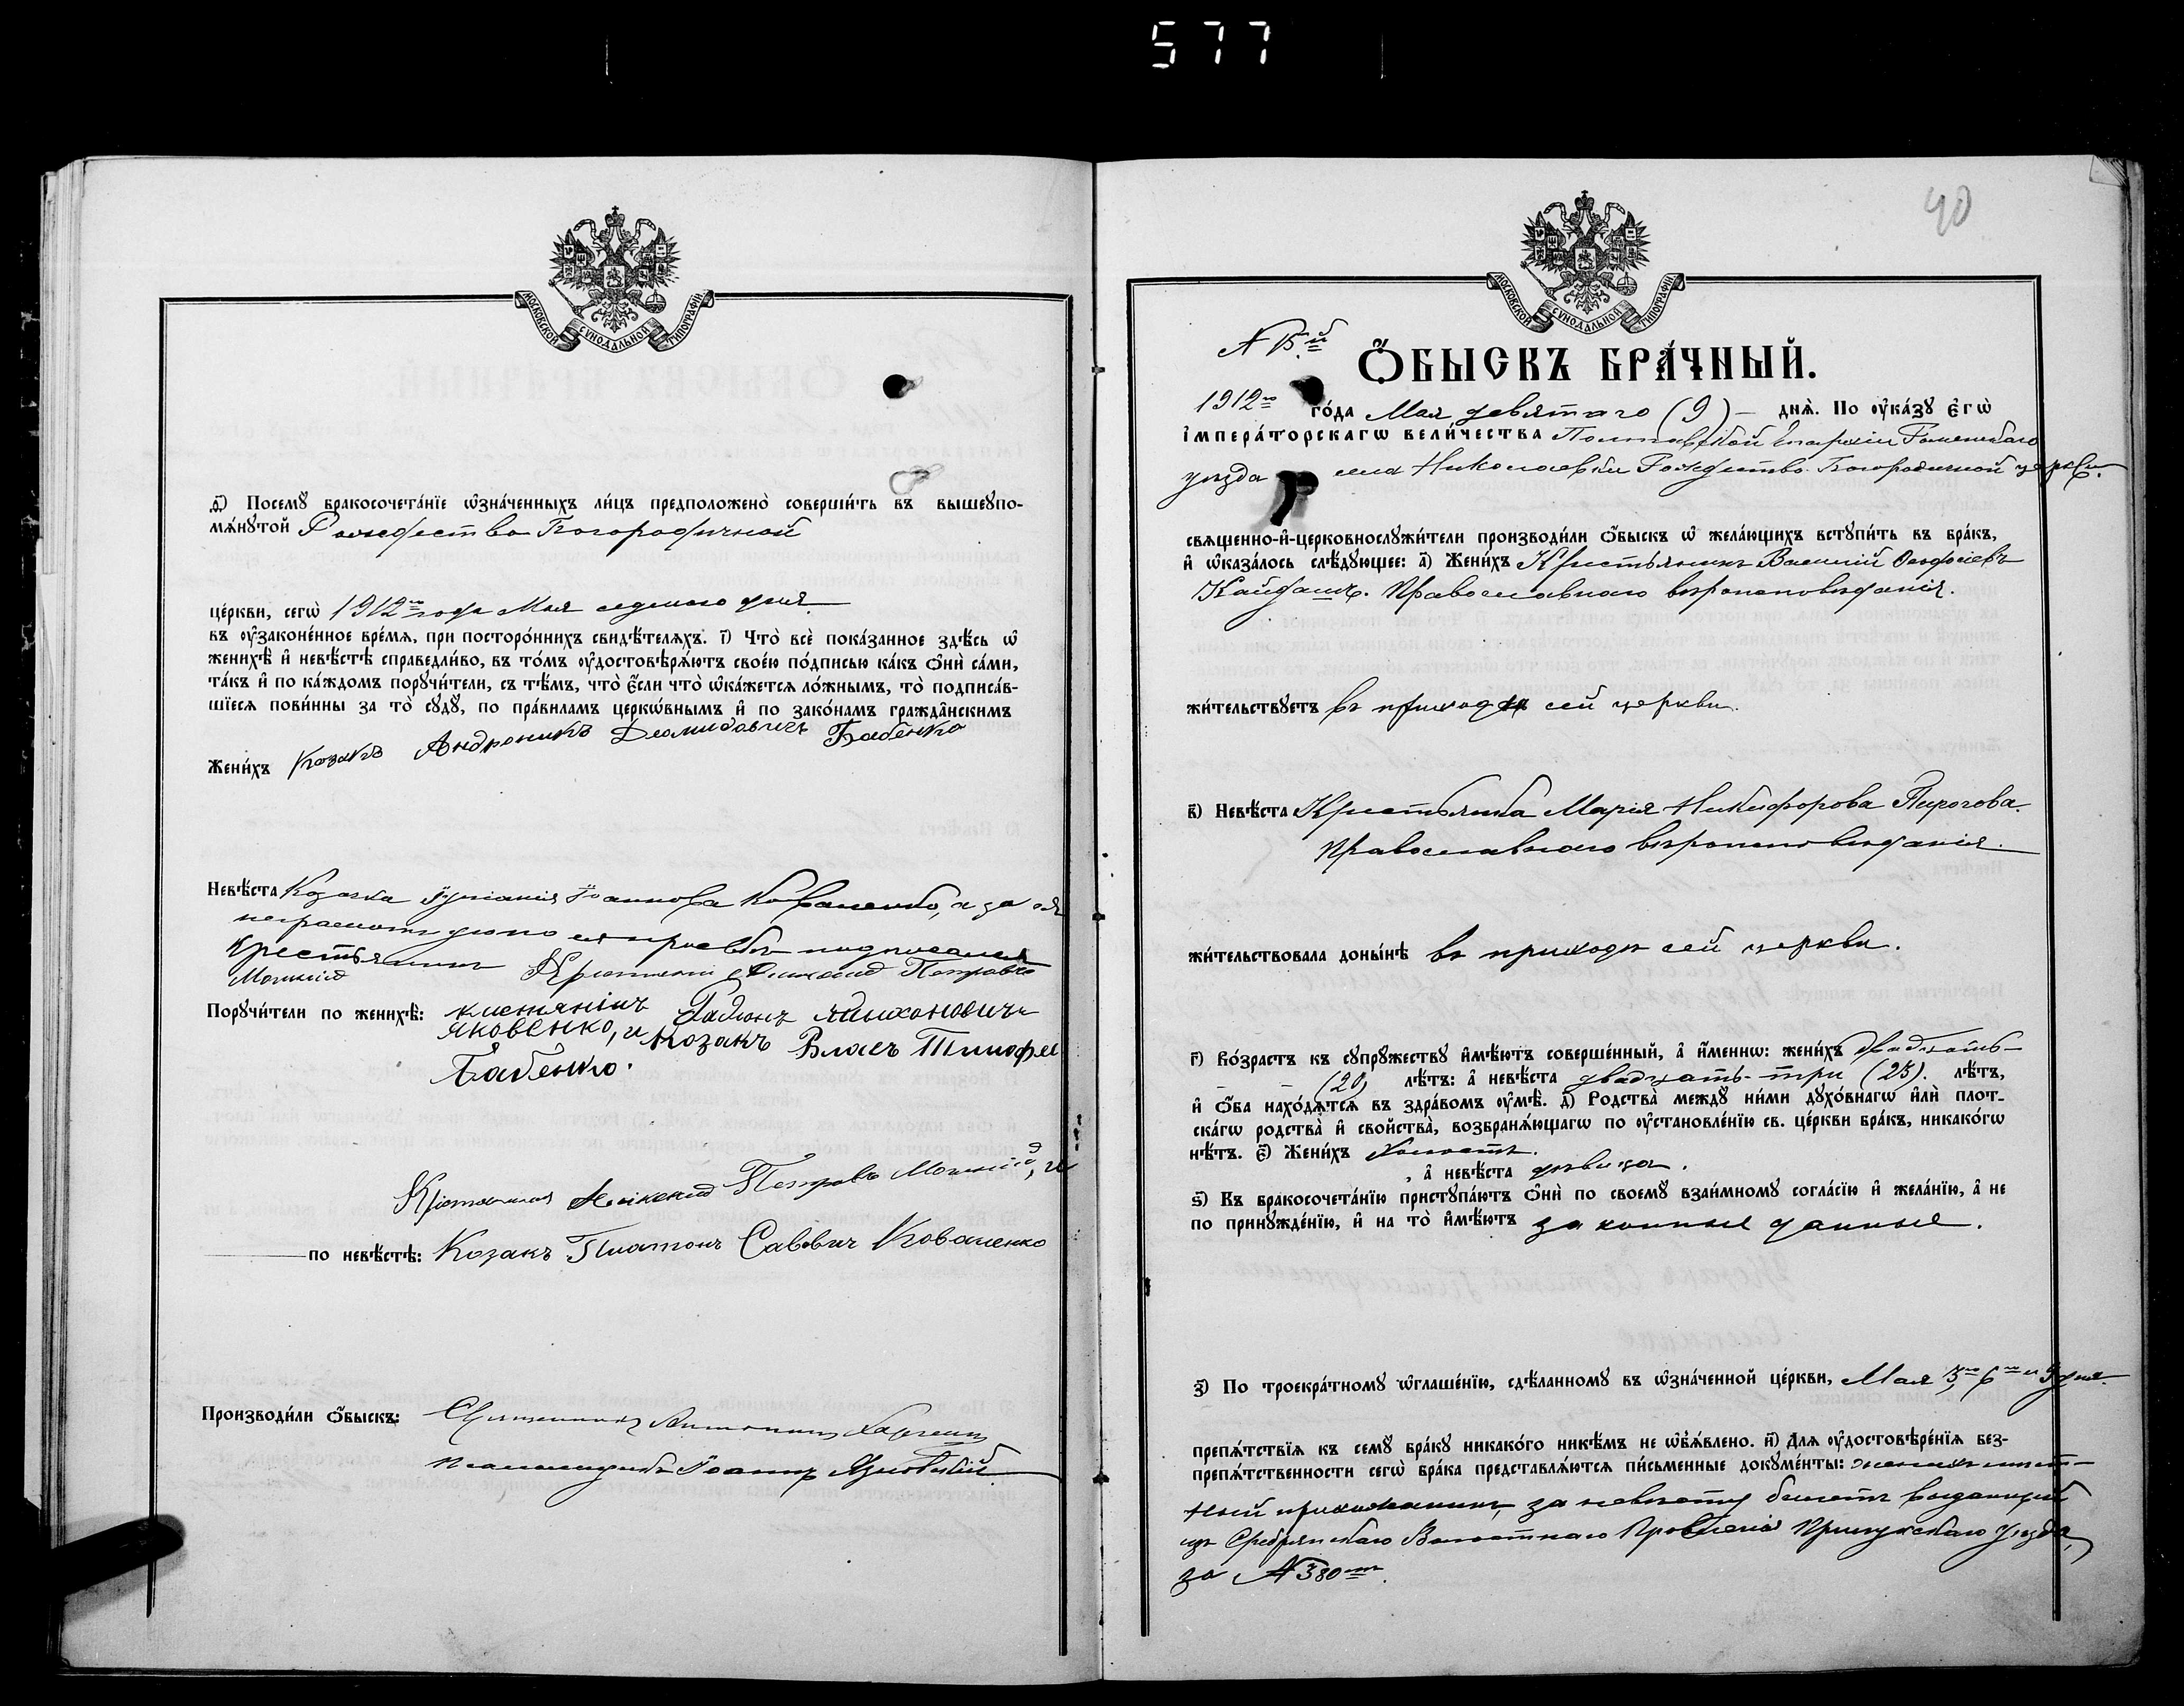 577
МОСКОВСКОЙ СУНОДАЛЬНОЙ ТИПОГРАФІИ
д҃) Посемꙋ̀ бракосочета́нїе ѡ҆зна́ченныхъ ли́цъ предположено̀ соверши́ть въ вышеꙋпо-
мѧ́нꙋтой Рождество Богородичной
це́ркви, сегѡ̀ 1912го года Мая седьмого дня
въ ᲂу҆законе́нное вре́мѧ, при посторо́ннихъ свидѣ́телѧхъ. і҃) Что̀ всѐ пока́занное здѣ́сь ѡ҆
женихѣ̀ и҆ невѣ́стѣ справедли́во, въ то́мъ ᲂу҆достовѣрѧ́ютъ свое́ю по́дписью ка́къ ѻ҆нѝ са́ми,
та́къ и҆ по ка́ждомъ порꙋчи́тели, съ тѣ́мъ, что̀ є҆́сли что̀ ѡ҆ка́жетсѧ ло́жнымъ, то̀ подписа́в-
шїесѧ пови́нны за то̀ сꙋдꙋ̀, по пра́виламъ церкѡ́внымъ и҆ по зако́намъ гражда̑нскимъ
Жени́хъ Козакъ Андроникъ Диомидовичъ Бабенко
Невѣ́ста Козачка Іуліанія Іоаннова Коваленко, а за ея
неграмотн по ея просьбѣ подписался
крестьянинъ Петровъ
Порꙋчи́тели по женихѣ̀:
Яковенко, и Козакъ Власъ Тимофе
Бабенко.
Петровъ и
по невѣ́стѣ: Козакъ Платонъ Саввичъ Коваленко
Производи́ли ѻ҆́быскъ: Священникъ
Псаломщикъ Іоаннъ
40
МОСКОВСКОЙ СУНОДАЛЬНОЙ ТИПОГРАФІИ
Ѻ҆́БЫСКЪ БРА́ЧНЫЙ.
1912го го́да Мая девятаго (9) — днѧ̀. По ᲂу҆ка́зꙋ є҆гѡ̀
і҆мпера́торскагѡ вели́чества Полтавской Епархіи Роменскаго
уѣзда села Николаевки Рождество-Богородичной церкви.
свѧщенно-и҆-церковнослꙋжи́тели производи́ли ѻ҆́быскъ ѡ҆ жела́ющихъ встꙋпи́ть въ бра́къ,
и҆ ѡ҆каза́лось слѣ́дꙋющее: а҃) Жени́хъ Крестьянинъ Василій
Кайдашъ. Православнаго вѣроисповѣданія.
жи́тельствꙋетъ въ приходѣ сей церкви.
в҃) Невѣ́ста Крестьянка Марія Никифорова Пирогова.
Православнаго вѣроисповѣданія.
жи́тельствовала доны́нѣ въ приходѣ сей церкви.
г҃) Во́зрастъ къ сꙋпрꙋ́жествꙋ и҆мѣ́ютъ соверше́нный, а҆ и҆́меннѡ: жени́хъ двадцать-
(20) лѣ́тъ: а҆ невѣ́ста двадцать-три (23). лѣ́тъ,
и҆ ѻ҆́ба нахо́дѧтсѧ въ здра́вомъ ᲂу҆мѣ̀. д҃) Родства̀ междꙋ̀ ни́ми дꙋхо́внагѡ и҆лѝ плот-
ска́гѡ родства̀ и҆ сво́йства, возбранѧ́ющагѡ по ᲂу҆становле́нїю св. це́ркви бра́къ, никако́гѡ
нѣ́тъ. є҃) Жени́хъ холостъ.
, а҆ невѣ́ста дѣвица.
ѕ҃) Къ бракосочета́нїю пристꙋпа́ютъ ѻ҆нѝ по своемꙋ̀ взаи́мномꙋ согла́сїю и҆ жела́нїю, а҆ не
по принꙋжде́нїю, и҆ на то̀ и҆мѣ́ютъ законные данные.
з҃) По троекра́тномꙋ ѡ҆глаше́нїю, сдѣ́ланномꙋ въ ѡ҆зна́ченной це́ркви, Мая 5го 6го и 9 дня.
препѧ́тствїѧ къ семꙋ̀ бра́кꙋ никако́го никѣ́мъ не ѡ҆б̾ѧ́влено. и҃) Для ᲂу҆достовѣре́нїѧ без-
препѧ́тственности сегѡ̀ бра́ка представлѧ́ютсѧ пи́сьменные докꙋме́нты: женихъ мѣст-
ный прихожанинъ, за невѣсту билетъ выданный
изъ Сребрянскаго Волостнаго Правленія Прилукскаго уѣзда,
за № 380мъ.